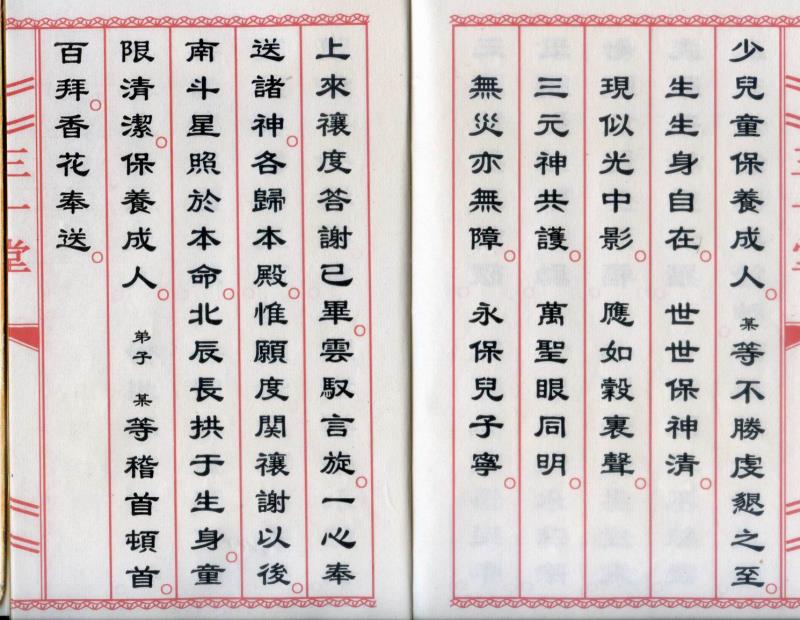 少兒童保養成人。某等不勝虔懇之至。
生生身自在。世世保神清。
現似光中影。應如榖裏聲。
三元神共護。萬聖眼同明。
無災亦無障。永保兒子寧。
上來禳度答謝已畢。雲馭言旋。一心奉
送諸神。各歸本殿。惟願度関禳謝以後。
南斗星照於本命。北辰長拱于生身。童
限清潔。保養成人。弟子某等稽首頓首。
百拜。香花奉送。
三一堂